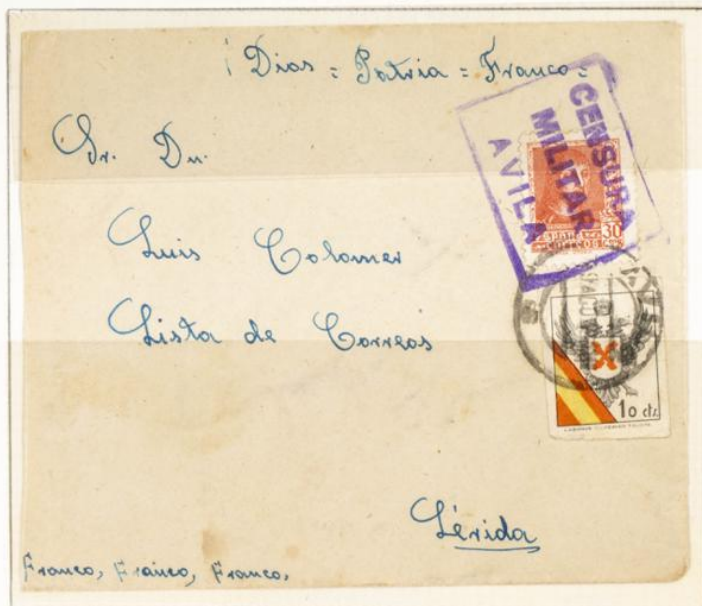 ¡ Dios = Patria = Franco =
CENSURA
MILITAR
AVILA
Sr. Dn.
30
CORREOS
Luis Colomer
Lista de Correos
10 cts.
Lérida
Franco, Franco, Franco.